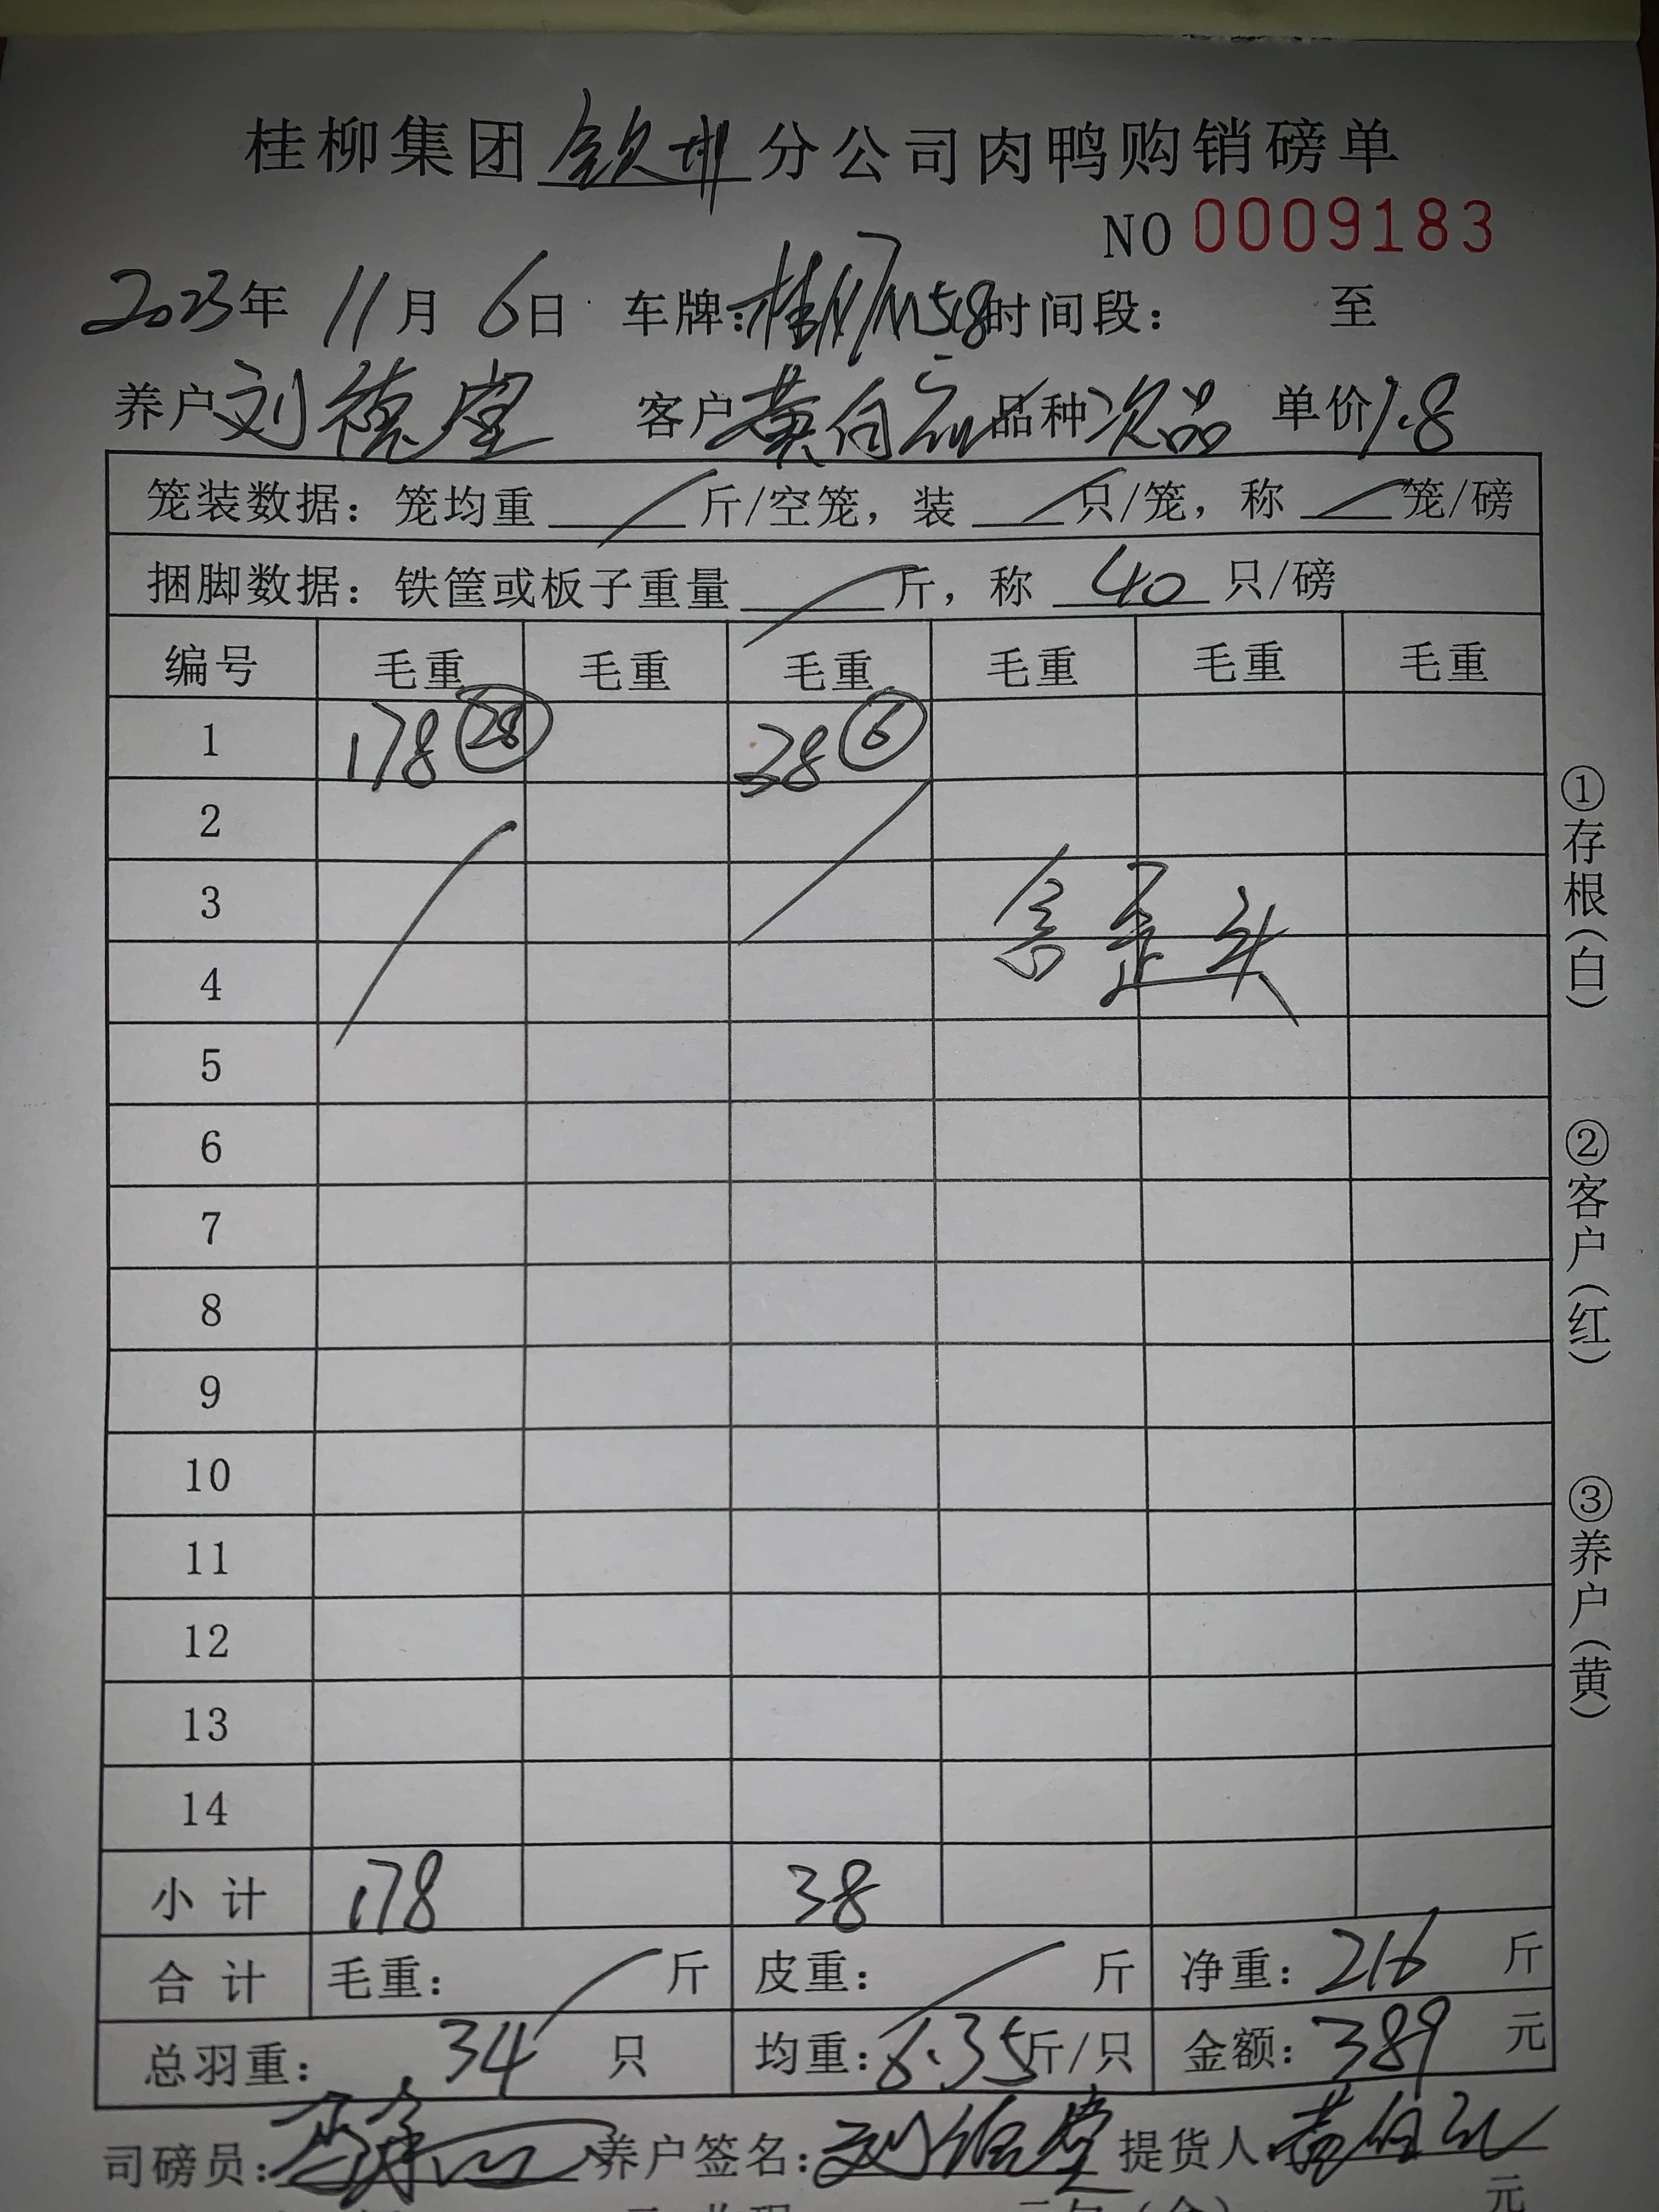 桂柳集团钦州分公司肉鸭购销磅单
NO 0009183
2023年 11月 6日 车牌: 时间段: 至
养户 刘德堂 客户 黄 品种 次品 单价 1.8
笼装数据: 笼均重 斤/空笼, 装 只/笼, 称 笼/磅
捆脚数据: 铁筐或板子重量 斤, 称 40 只/磅
编号 毛重 毛重 毛重 毛重 毛重 毛重
1 178 28 38 6
2
3
含歪头
4
5
6
7
8
9
10
11
12
13
14
小计 178 38
合计 毛重: 斤 皮重: 斤 净重: 216 斤
总羽重: 34 只 均重: 6.35 斤/只 金额: 389 元
司磅员: 养户签名: 刘德堂 提货人
元
①存根(白)
②客户(红)
③养户(黄)